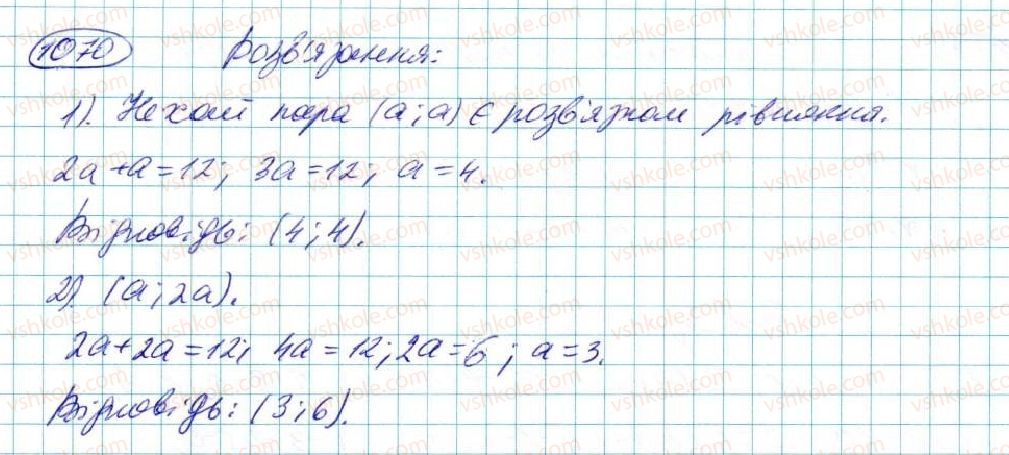 1070 Розв'язання:
1). Нехай пара (a; a) є розв'язком рівняння.
2a + a = 12; 3a = 12; a = 4.
Відповідь: (4; 4).
2). (a; 2a).
2a + 2a = 12; 4a = 12; 2a = 6; a = 3.
Відповідь: (3; 6).